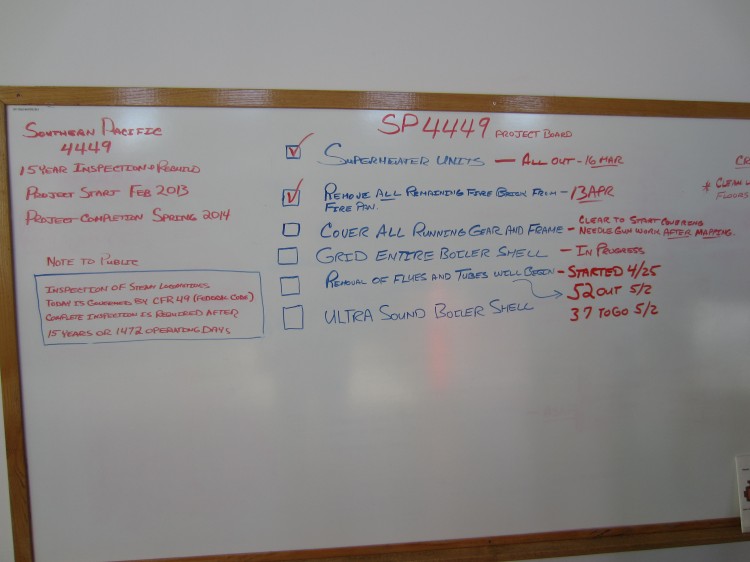 SOUTHERN PACIFIC
4449
15 YEAR INSPECTION & REBUILD
PROJECT START FEB 2013
PROJECT COMPLETION SPRING 2014
NOTE TO PUBLIC
INSPECTION OF STEAM LOCOMOTIVES
TODAY IS GOVERNED BY CFR 49 (FEDERAL CODE)
COMPLETE INSPECTION IS REQUIRED AFTER
15 YEARS OR 1472 OPERATING DAYS
SP4449 PROJECT BOARD
SUPERHEATER UNITS — ALL OUT - 16 MAR
REMOVE ALL REMAINING FIRE BRICK FROM - 13 APR
FIRE PAN.
COVER ALL RUNNING GEAR AND FRAME - CLEAR TO START COVERING
NEEDLE GUN WORK AFTER MAPPING.
GRID ENTIRE BOILER SHELL - IN PROGRESS
REMOVAL OF FLUES AND TUBES WILL BEGIN - STARTED 4/25
52 OUT 5/2
ULTRA SOUND BOILER SHELL
37 TO GO 5/2
* CLEAN
FLOORS